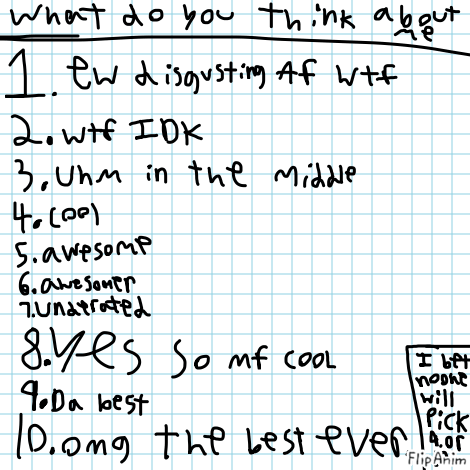 What do you think about
me
1. ew disgusting Af wtf
2. wtf IDK
3. Uhm in the middle
4. cool
5. awesome
6. awesomer
7. Underrated
8. Yes so mf cool
9. Da best
10. omg the best ever
I bet
noone
will
Pick
9. or
FlipAnim